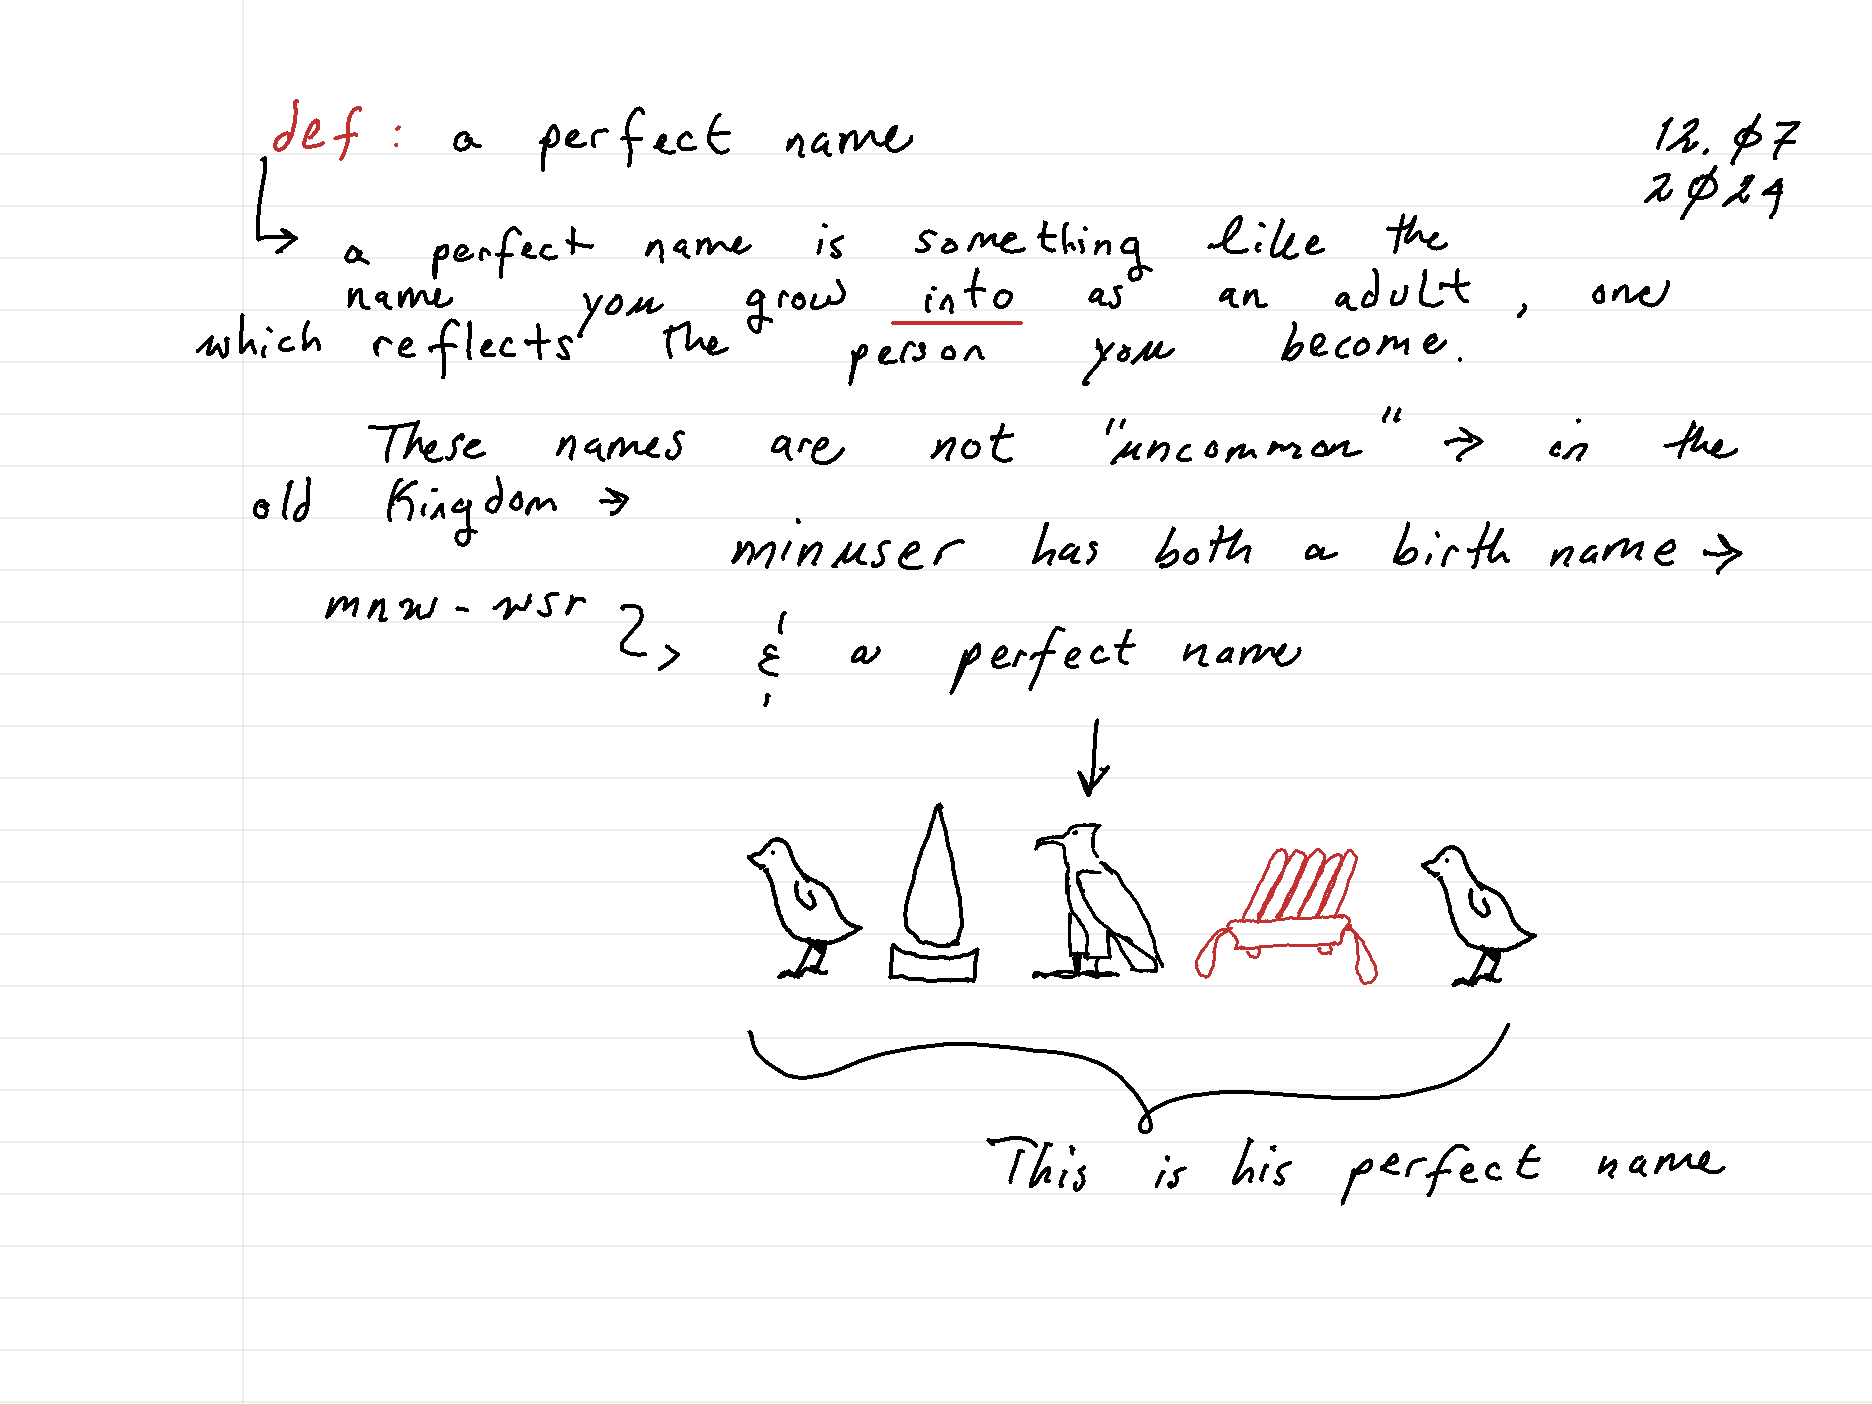 def: a perfect name
12.07
2024
a perfect name is something like the
name you grow into as an adult, one
which reflects the person you become.
These names are not "uncommon" → in the
old Kingdom →
minuser has both a birth name →
mnw-wsr
& a perfect name
𓅱𓐩𓄿𓎼𓅱
This is his perfect name